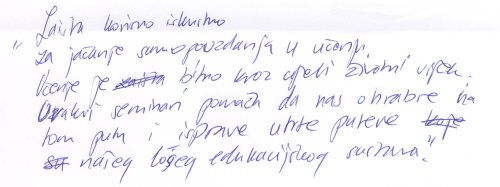 "Zaista korisno iskustvo
za jačanje samopouzdanja u učenju.
Učenje je bitno kroz cijeli životni vijek.
Ovakvi seminari pomažu da nas ohrabre na
tom putu i isprave utrte puteve
našeg lošeg edukacijskog sustava."